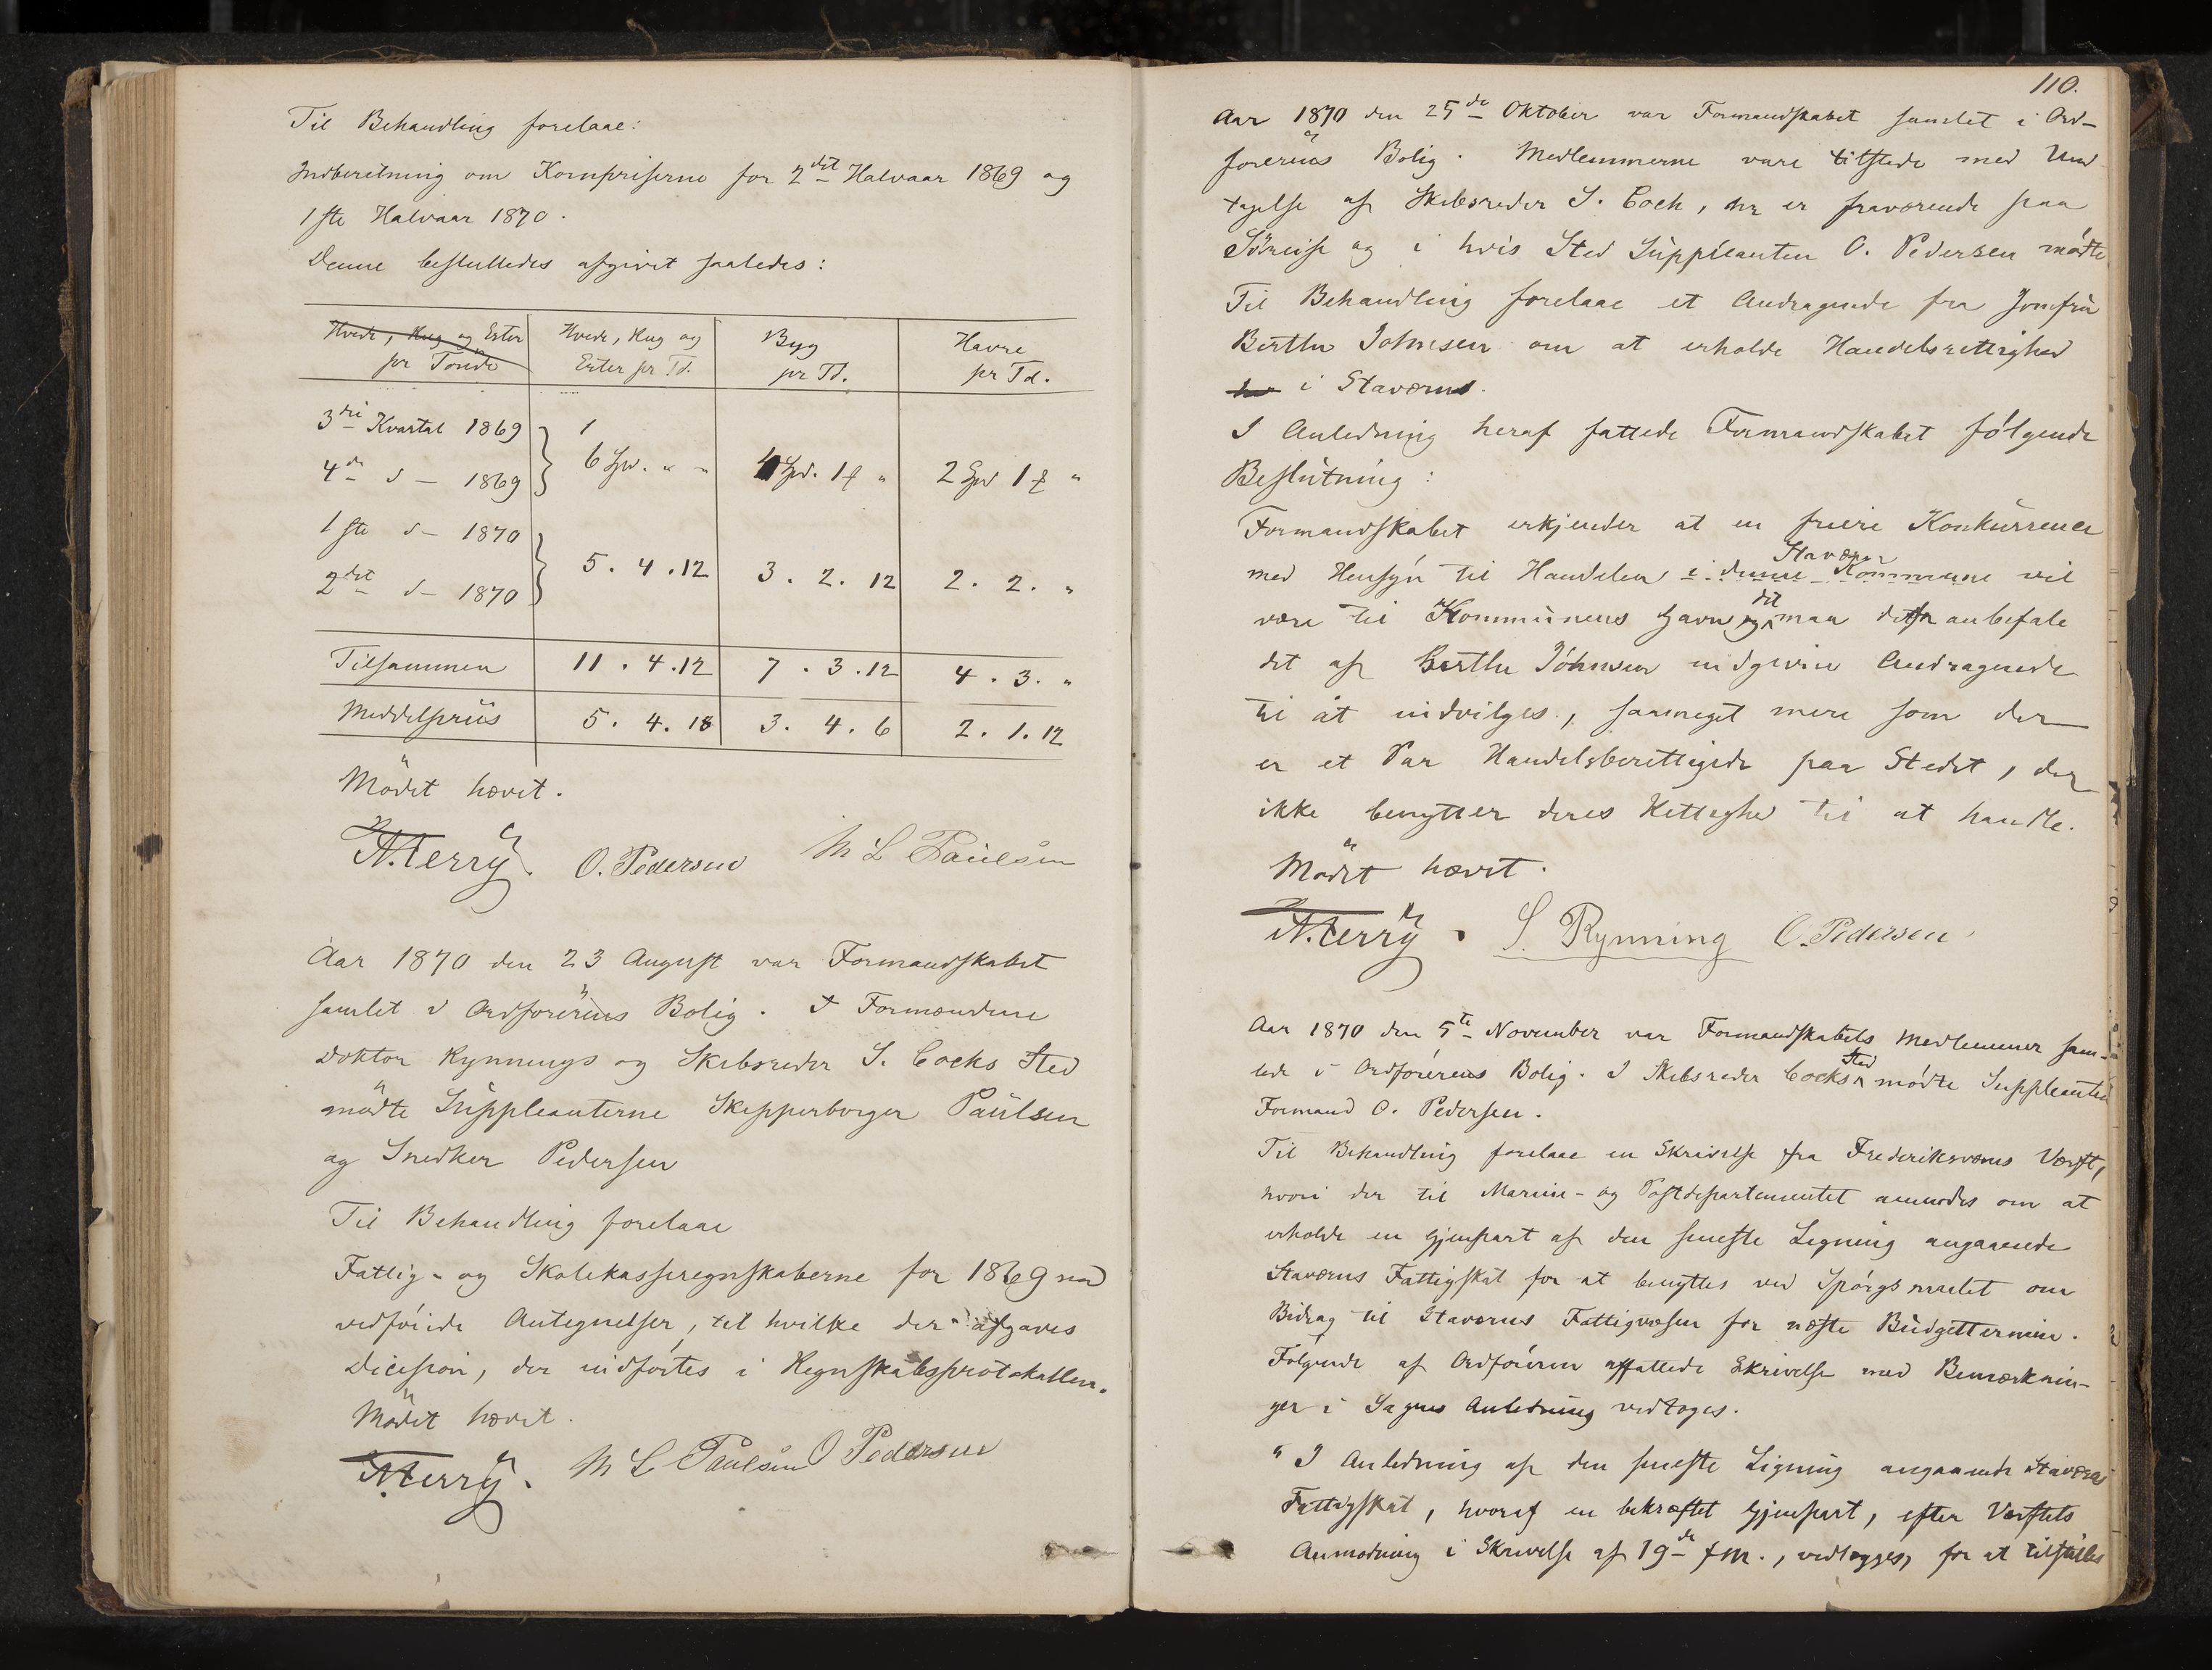 Til Behandling forelaae:
Indberetning om Kornpriserne for 2det Halvaar 1869 og
1ste Halvaar 1870.
Denne besluttedes afgivet saaledes:
Hvede, Rug og Erter pr Tönde
Hvede, Rug og Erter pr Td.
Byg pr Td.
Havre pr Td.
3die Kvartal 1869
4de d – 1869
6 Spd. " "
4 Spd. 1 ƒ "
2 Spd 1 ƒ "
1ste d – 1870
2det d – 1870
5. 4. 12
3. 2. 12
2. 2. "
Tilsammen 11. 4. 12 7. 3. 12 4. 3. "
Middelpriis 5. 4. 18 3. 4. 6 2. 1. 12
Mödet hævet.
N. Terry. O. Pedersen M L Paulsen
Aar 1870 den 23 August var Formandskabet
samlet i Ordförerens Bolig. I Formændene
Doktor Rynnings og Skibsreder S. Cocks Sted
mödte Suppleanterne Skipperborger Paulsen
og Snedker Pedersen
Til Behandling forelaae
Fattig- og Skolekasseregnskaberne for 1869 med
vedföiede Antegnelser, til hvilke der afgaves
Decision, der indförtes i Regnskabsprotokollen.
Mödet hævet.
N. Terry. M L Paulsen O Pedersen
110.
Aar 1870 den 25de Oktober var Formandskabet samlet i Ord-
förerens Bolig. Medlemmerne vare tilstede med Und
tagelse af Skibsreder S. Cock, der er fraværende paa
Söreise og i hvis Sted Suppleanten O. Pedersen mödte
Til Behandling forelaae et Andragende fra Jomfru
Berthe Johnsen om at erholde Handelsrettighed
i Staværns.
I Anledning heraf fattede Formandskabet fölgende
Beslutning:
Formandskabet erkjender at en friere Konkurrence
Staværns
med Hensyn til Handelen i denne Kommune vil
være til Kommunens Gavn og det maa anbefale
det af Berthe Johnsen indgivne Andragende
til at indvilges, saameget mere som der
er et Par Handelsberettigede paa Stedet, der
ikke benytter deres Rettighed til at handle.
Mödet hævet.
N. Terry. S. Rynning O. Pedersen
Aar 1870 den 5te November var Formandskabets Medlemmer sam-
lede i Ordförerens Bolig. I Skibsreder Cocks Sted mödte Suppleanten
Formand O. Pedersen.
Til Behandling forelaae en Skrivelse fra Frederiksværns Værft,
hvori der til Marine- og Postdepartementet anmodes om at
erholde en Gjenpart af den seneste Ligning angaaende
Staværns Fattigskat for at benyttes ved Spörgsmaalet om
Bidrag til Staværns Fattigvæsen for næste Budgettermin.
Fölgende af Ordföreren affattede Skrivelse med Bemærknin-
ger i Sagens Anledning vedtoges.
" I Anledning af den seneste Ligning angaaende Staværns
Fattigskat, hvoraf en bekræftet Gjenpart, efter Værftets
Anmodning i Skrivelse af 19de f.M., vedlægges, for at tilstilles